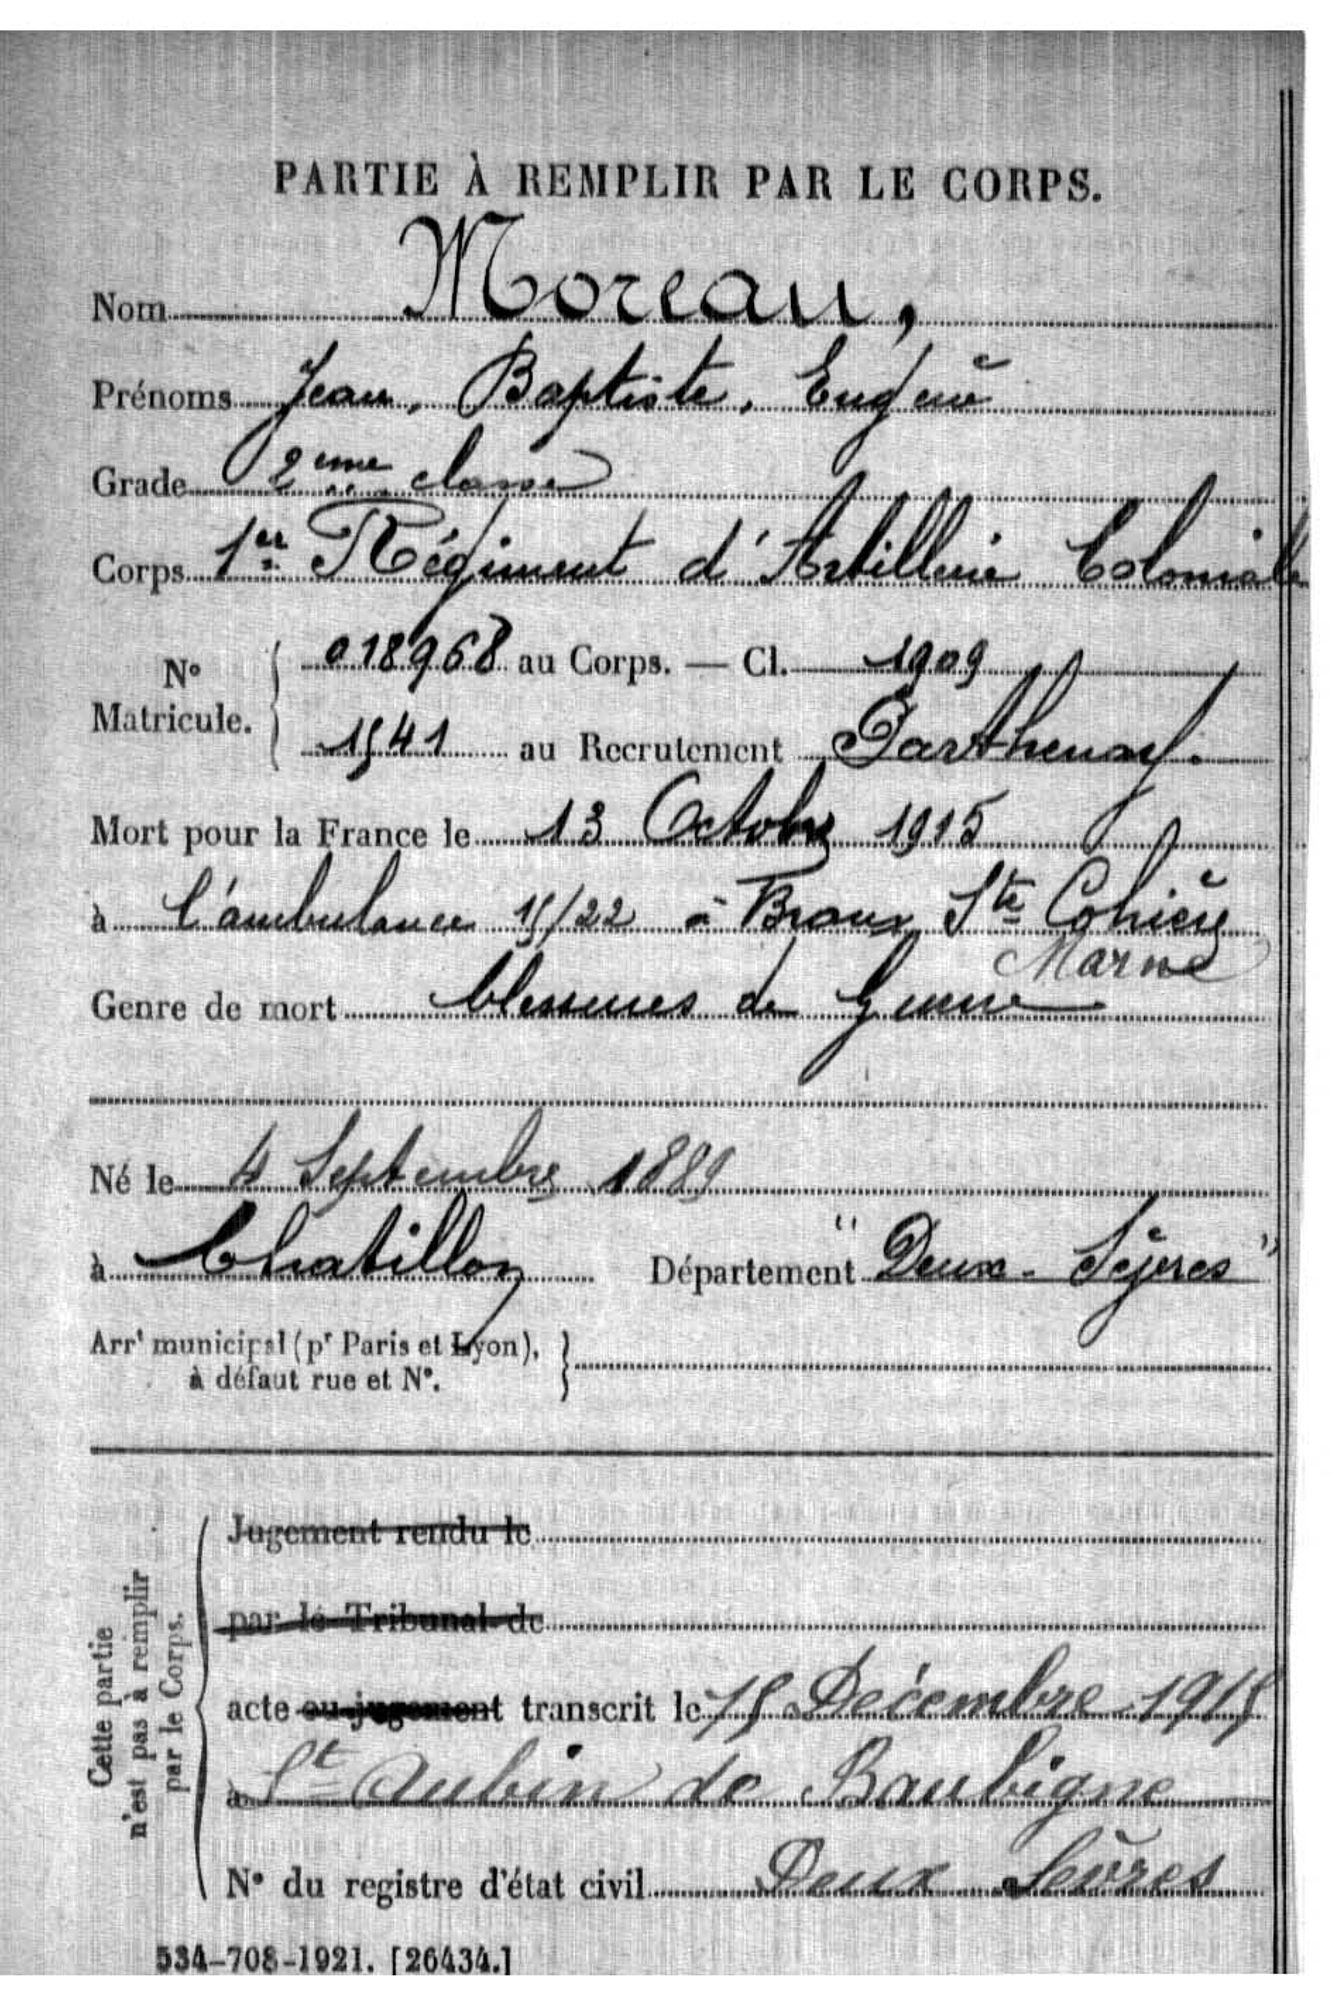 PARTIE À REMPLIR PAR LE CORPS.
Nom Moreau,
Prénoms Jean, Baptiste, Eugène
Grade 2ème classe
Corps 1er Régiment d'Artillerie Coloniale
N° Matricule. 018968 au Corps. — Cl. 1909
1541 au Recrutement Parthenay.
Mort pour la France le 13 Octobre 1915
à l'ambulance 15/22 à Braux Ste Cohière
Marne
Genre de mort blessures de Guerre
Né le 4 Septembre 1889
à Chatillon Département "Deux-Sèvres"
Arrt municipal (pr Paris et Lyon),
à défaut rue et N°.
Cette partie
n'est pas à remplir
par le Corps.
Jugement rendu le
par le Tribunal de
acte ou jugement transcrit le 15 Décembre 1915
à St Aubin de Baubigné
N° du registre d'état civil Deux Sèvres
534-708-1921. [26434.]